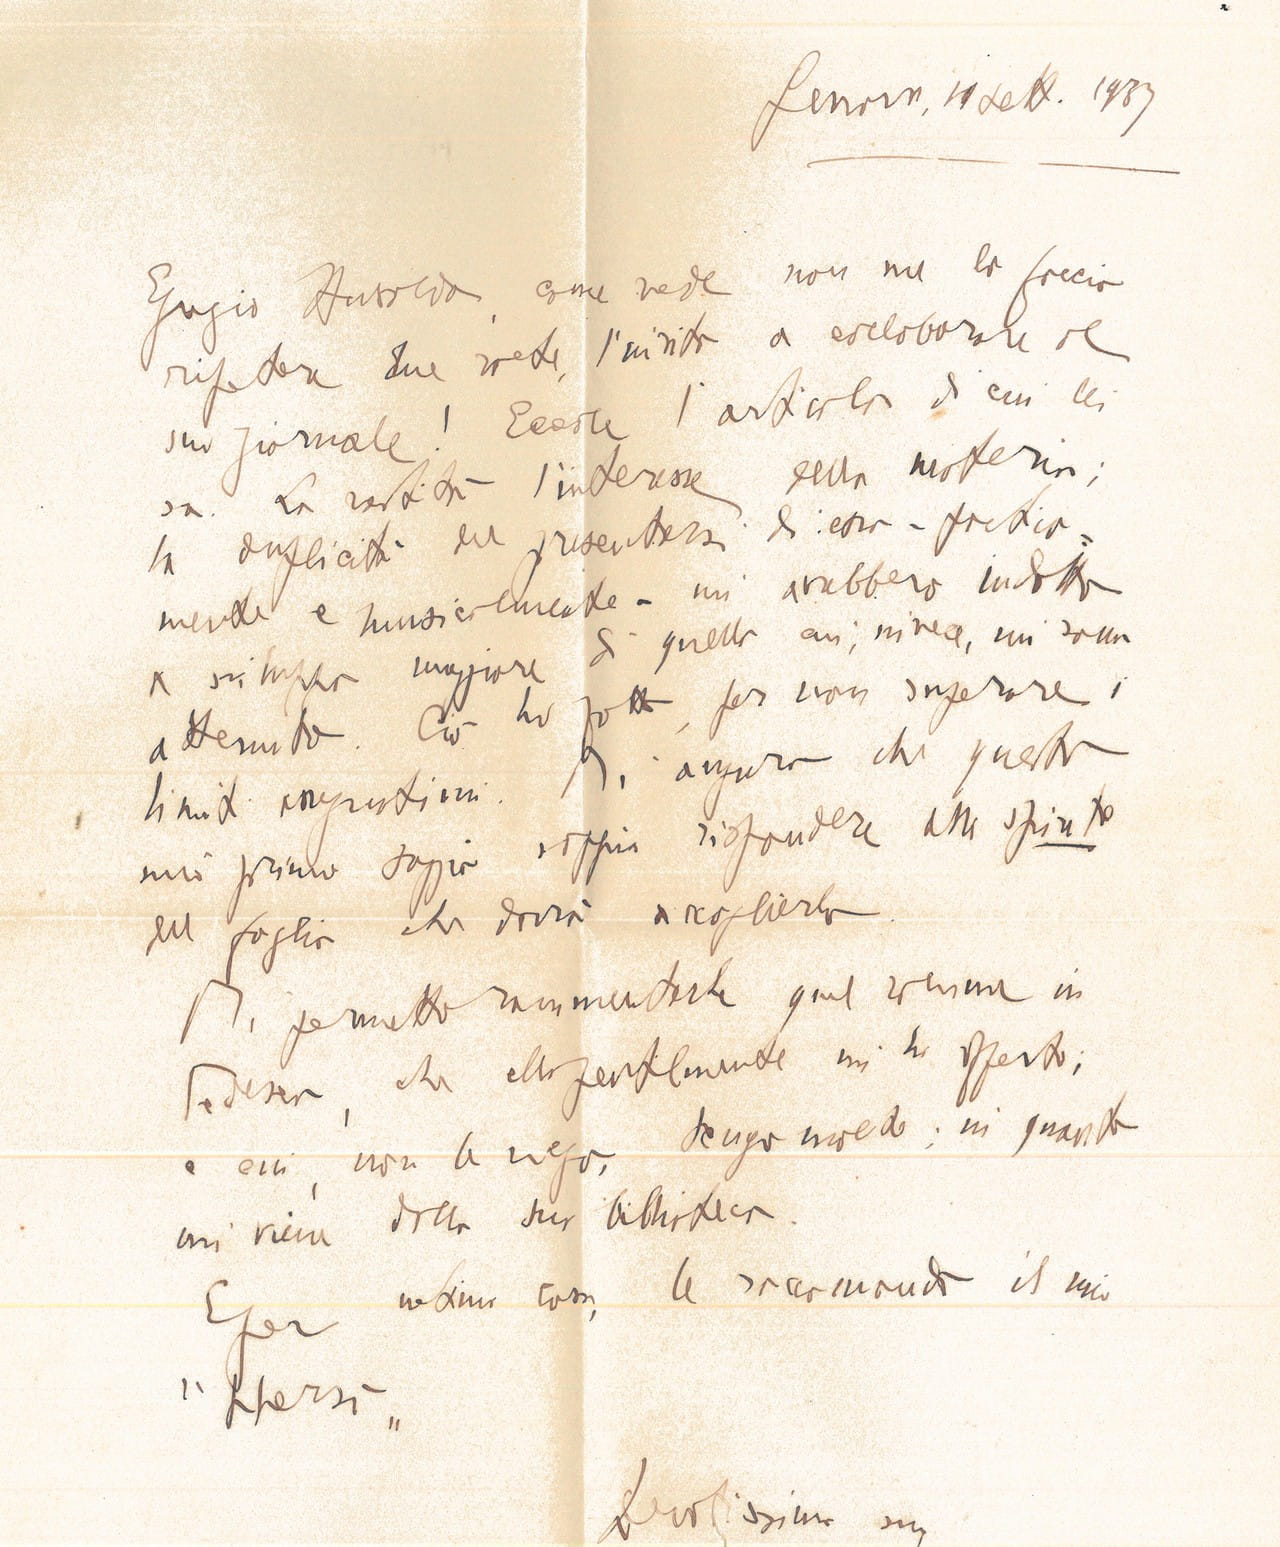 Genova, 10 sett. 1937
Egregio come vede non me lo faccio
ripetere due volte, l'invito a collaborare al
suo giornale! Eccole l'articolo di cui lei
sa. La vastità l'interesse della materia;
la duplicità del presentarsi di essa -
mente e musicalmente - mi avrebbero indotto
a sviluppo maggiore di quello cui, invece, mi sono
attenuto. Ciò ho fatto, per non superare i
limiti angustissimi. Mi auguro che questo
mio primo saggio sappia rispondere alla
del foglio che dovrà accoglierlo.
Mi permetto rammentarle quel volume in
tedesco, che ella gentilmente mi ha offerto;
e cui, non le nego, tengo molto; in quanto
mi viene dalla sua biblioteca.
E per ultima cosa, le raccomando il mio
Devotissimo suo